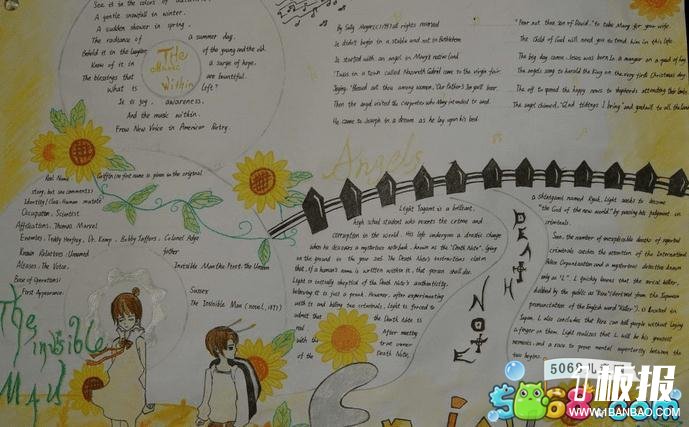 See it in the colors of autumn
A gentle snowfall in winter.
A sudden shower in spring.
The radiance of a summer day.
Behold it in the laughter of the young and the old.
Know of it in a surge of hope,
The blessings that are bountiful.
What is left?
It is joy, awareness,
And the music within.
From New Voice in American Poetry.
THE
Music
Within
By Sally Meyer(c)1997 all rights reserved
It didn't begin in a stable and not in Bethlehem
It started with an angel in Mary's native land
'Twas in a town called Nazareth Gabriel came to the virgin fair.
Saying, "Blessed art thou among women,
Then the angel visited the carpenter who Mary intended to wed.
He came to Joseph in a dream as he lay upon his bed.
"Fear not thee Son of David, to take Mary for your wife.
The Child of God will need you
The big day came Jesus was born In a manger on a
The angels sang to herald the King on the very first Christmas day.
the happy news to shepherds attending their lambs
The angel chimed, "Glad tidings I bring" and goodwill to all the
Angels
Real Name: Griffin (no first name is given in the original
story, but see comments)
Identity/Class: Human mutate
Occupation: Scientist
Affiliations: Thomas Marvel
Enemies: Teddy Henfrey, Dr. Kemp, Bobby Jaffers, Colonel Adye
Known Relatives: Unnamed father
Aliases: The Voice, Invisible Man the First, the Unseen
Base of Operations: Sussex
First Appearance: The Invisible Man (novel, 1897)
The
invisible
Man
Light Yagami is a brilliant,
high school student who resents the crime and
corruption in the world. His life undergoes a drastic change
when he discovers a mysterious notebook, known as the "Death Note", lying
on the ground
that if a human's name is written within it, that person shall die.
Light is initially skeptical of the Death Note's authenticity,
believing it is just a prank. However, after experimenting
with it and killing two criminals, Light is forced to
admit that the Death Note is
real. After meeting
with the true owner
of the Death Note,
DEATH
NOTE
a Shinigami named Ryuk, Light seeks to become
"the God of the new world" by passing his judgment on
criminals.
Soon, the number of inexplicable deaths of reported
criminals catches the attention of the International
Police Organization and a mysterious detective known
only as "L". L quickly learns that the serial killer,
dubbed by the public as "Kira" (derived from the Japanese
pronunciation of the English word "Killer"), is located in
Japan. L also concludes that Kira can kill people without laying
a finger on them. Light realizes that L will be his greatest
nemesis, and a race to prove mental superiority between the
two begins.
5068儿
板报
5068.com
WWW.1BANBAO.COM